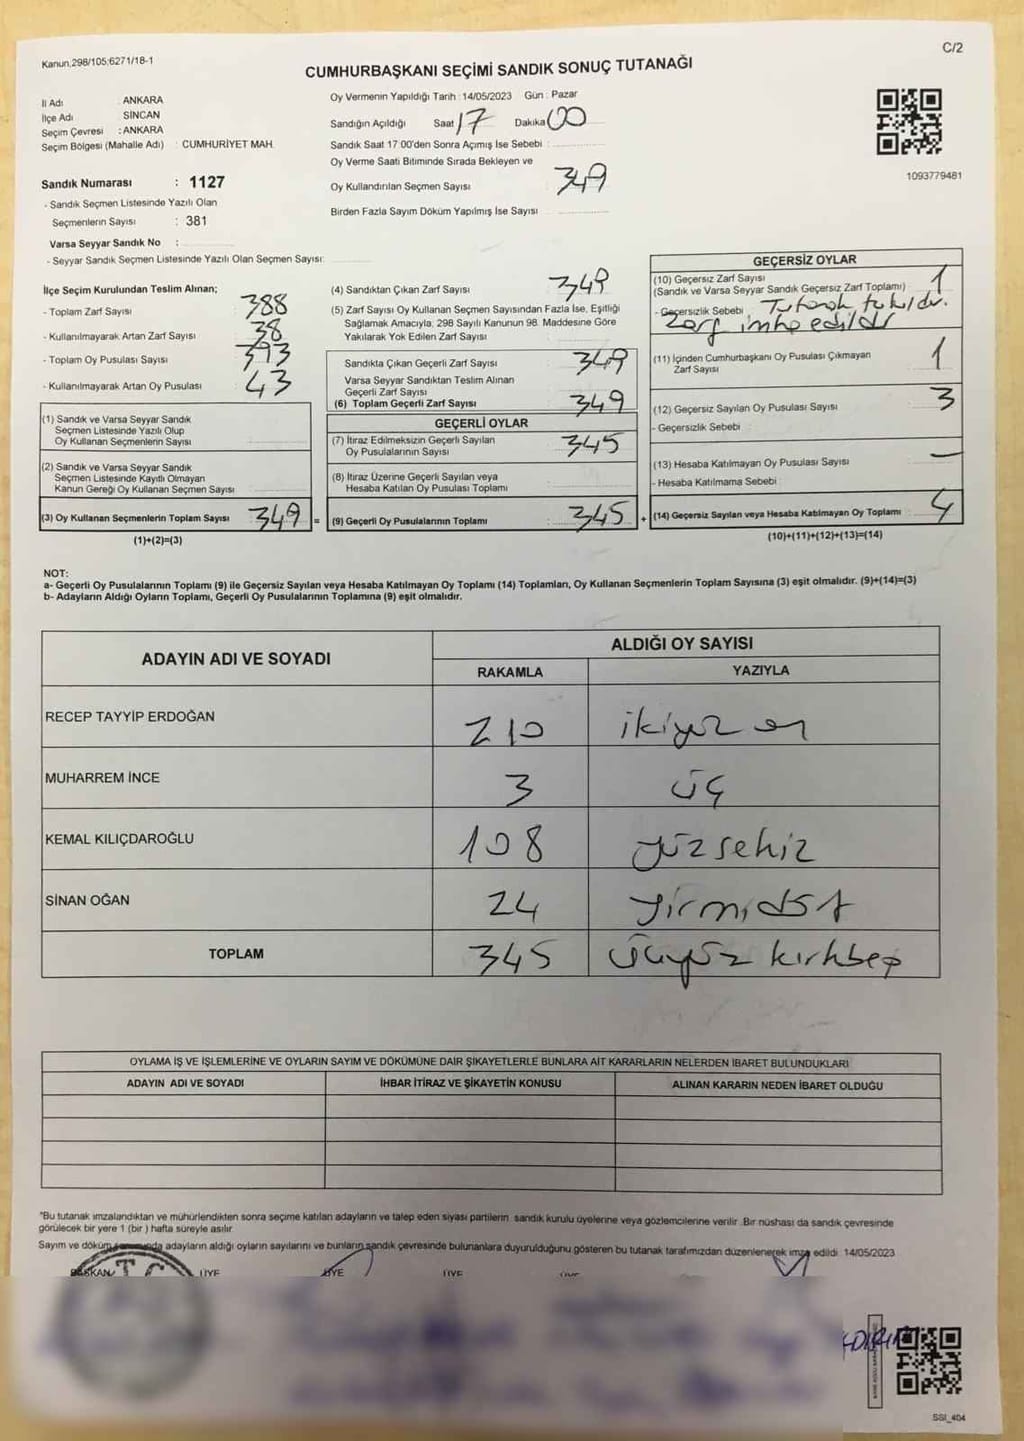 Kanun,298/105;6271/18-1
C/2
CUMHURBAŞKANI SEÇİMİ SANDIK SONUÇ TUTANAĞI
İl Adı : ANKARA
İlçe Adı SİNCAN
Seçim Çevresi : ANKARA
Seçim Bölgesi (Mahalle Adı) : CUMHURİYET MAH.
Sandık Numarası : 1127
- Sandık Seçmen Listesinde Yazılı Olan
Seçmenlerin Sayısı : 381
Varsa Seyyar Sandık No :
- Seyyar Sandık Seçmen Listesinde Yazılı Olan Seçmen Sayısı:
Oy Vermenin Yapıldığı Tarih : 14/05/2023 Gün : Pazar
Sandığın Açıldığı Saat 17 Dakika 00
Sandık Saat 17 00'den Sonra Açımış İse Sebebi :
Oy Verme Saati Bitiminde Sırada Bekleyen ve
Oy Kullandırılan Seçmen Sayısı 349
Birden Fazla Sayım Döküm Yapılmış İse Sayısı
1093779481
İlçe Seçim Kurulundan Teslim Alınan;
- Toplam Zarf Sayısı 388
- Kullanılmayarak Artan Zarf Sayısı 38
- Toplam Oy Pusulası Sayısı 393
- Kullanılmayarak Artan Oy Pusulası 43
(1) Sandık ve Varsa Seyyar Sandık
Seçmen Listesinde Yazılı Olup
Oy Kullanan Seçmenlerin Sayısı
(2) Sandık ve Varsa Seyyar Sandık
Seçmen Listesinde Kayıtlı Olmayan
Kanun Gereği Oy Kullanan Seçmen Sayısı
(3) Oy Kullanan Seçmenlerin Toplam Sayısı 349 =
(1)+(2)=(3)
(4) Sandıktan Çıkan Zarf Sayısı 349
(5) Zarf Sayısı Oy Kullanan Seçmen Sayısından Fazla İse, Eşitliği
Sağlamak Amacıyla, 298 Sayılı Kanunun 98. Maddesine Göre
Yakılarak Yok Edilen Zarf Sayısı
Sandıkta Çıkan Geçerli Zarf Sayısı 349
Varsa Seyyar Sandıktan Teslim Alınan
Geçerli Zarf Sayısı
(6) Toplam Geçerli Zarf Sayısı 349
GEÇERLİ OYLAR
(7) İtiraz Edilmeksizin Geçerli Sayılan
Oy Pusulalarının Sayısı 345
(8) İtiraz Üzerine Geçerli Sayılan veya
Hesaba Katılan Oy Pusulası Toplamı
(9) Geçerli Oy Pusulalarının Toplamı : 345 +
GEÇERSİZ OYLAR
(10) Geçersiz Zarf Sayısı
(Sandık ve Varsa Seyyar Sandık Geçersiz Zarf Toplamı) 1
- Geçersizlik Sebebi Tutanak tutuldu.
Zarf imha edildi
(11) İçinden Cumhurbaşkanı Oy Pusulası Çıkmayan
Zarf Sayısı 1
(12) Geçersiz Sayılan Oy Pusulası Sayısı 3
- Geçersizlik Sebebi
(13) Hesaba Katılmayan Oy Pusulası Sayısı —
- Hesaba Katılmama Sebebi
(14) Geçersiz Sayılan veya Hesaba Katılmayan Oy Toplamı 4
(10)+(11)+(12)+(13)=(14)
NOT:
a- Geçerli Oy Pusulalarının Toplamı (9) ile Geçersiz Sayılan veya Hesaba Katılmayan Oy Toplamı (14) Toplamları, Oy Kullanan Seçmenlerin Toplam Sayısına (3) eşit olmalıdır. (9)+(14)=(3)
b- Adayların Aldığı Oyların Toplamı, Geçerli Oy Pusulalarının Toplamına (9) eşit olmalıdır.
ADAYIN ADI VE SOYADI
ALDIĞI OY SAYISI
RAKAMLA YAZIYLA
RECEP TAYYİP ERDOĞAN 210 ikiyüz on
MUHARREM İNCE 3 üç
KEMAL KILIÇDAROĞLU 108 yüzsekiz
SİNAN OĞAN 24 yirmidört
TOPLAM 345 üçyüz kırkbeş
OYLAMA İŞ VE İŞLEMLERİNE VE OYLARIN SAYIM VE DÖKÜMÜNE DAİR ŞİKAYETLERLE BUNLARA AİT KARARLARIN NELERDEN İBARET BULUNDUKLARI
ADAYIN ADI VE SOYADI İHBAR İTİRAZ VE ŞİKAYETİN KONUSU ALINAN KARARIN NEDEN İBARET OLDUĞU
*Bu tutanak imzalandıktan ve mühürlendikten sonra seçime katılan adayların ve talep eden siyasi partilerin sandık kurulu üyelerine veya gözlemcilerine verilir. Bir nüshası da sandık çevresinde
görülecek bir yere 1 (bir ) hafta süreyle asılır.
Sayım ve döküm adayların aldığı oyların sayılarını ve bunların sandık çevresinde bulunanlara duyurulduğunu gösteren bu tutanak tarafımızdan düzenlenerek imza edildi 14/05/2023
BAŞKAN ÜYE ÜYE ÜYE
T.C.
SSI_404